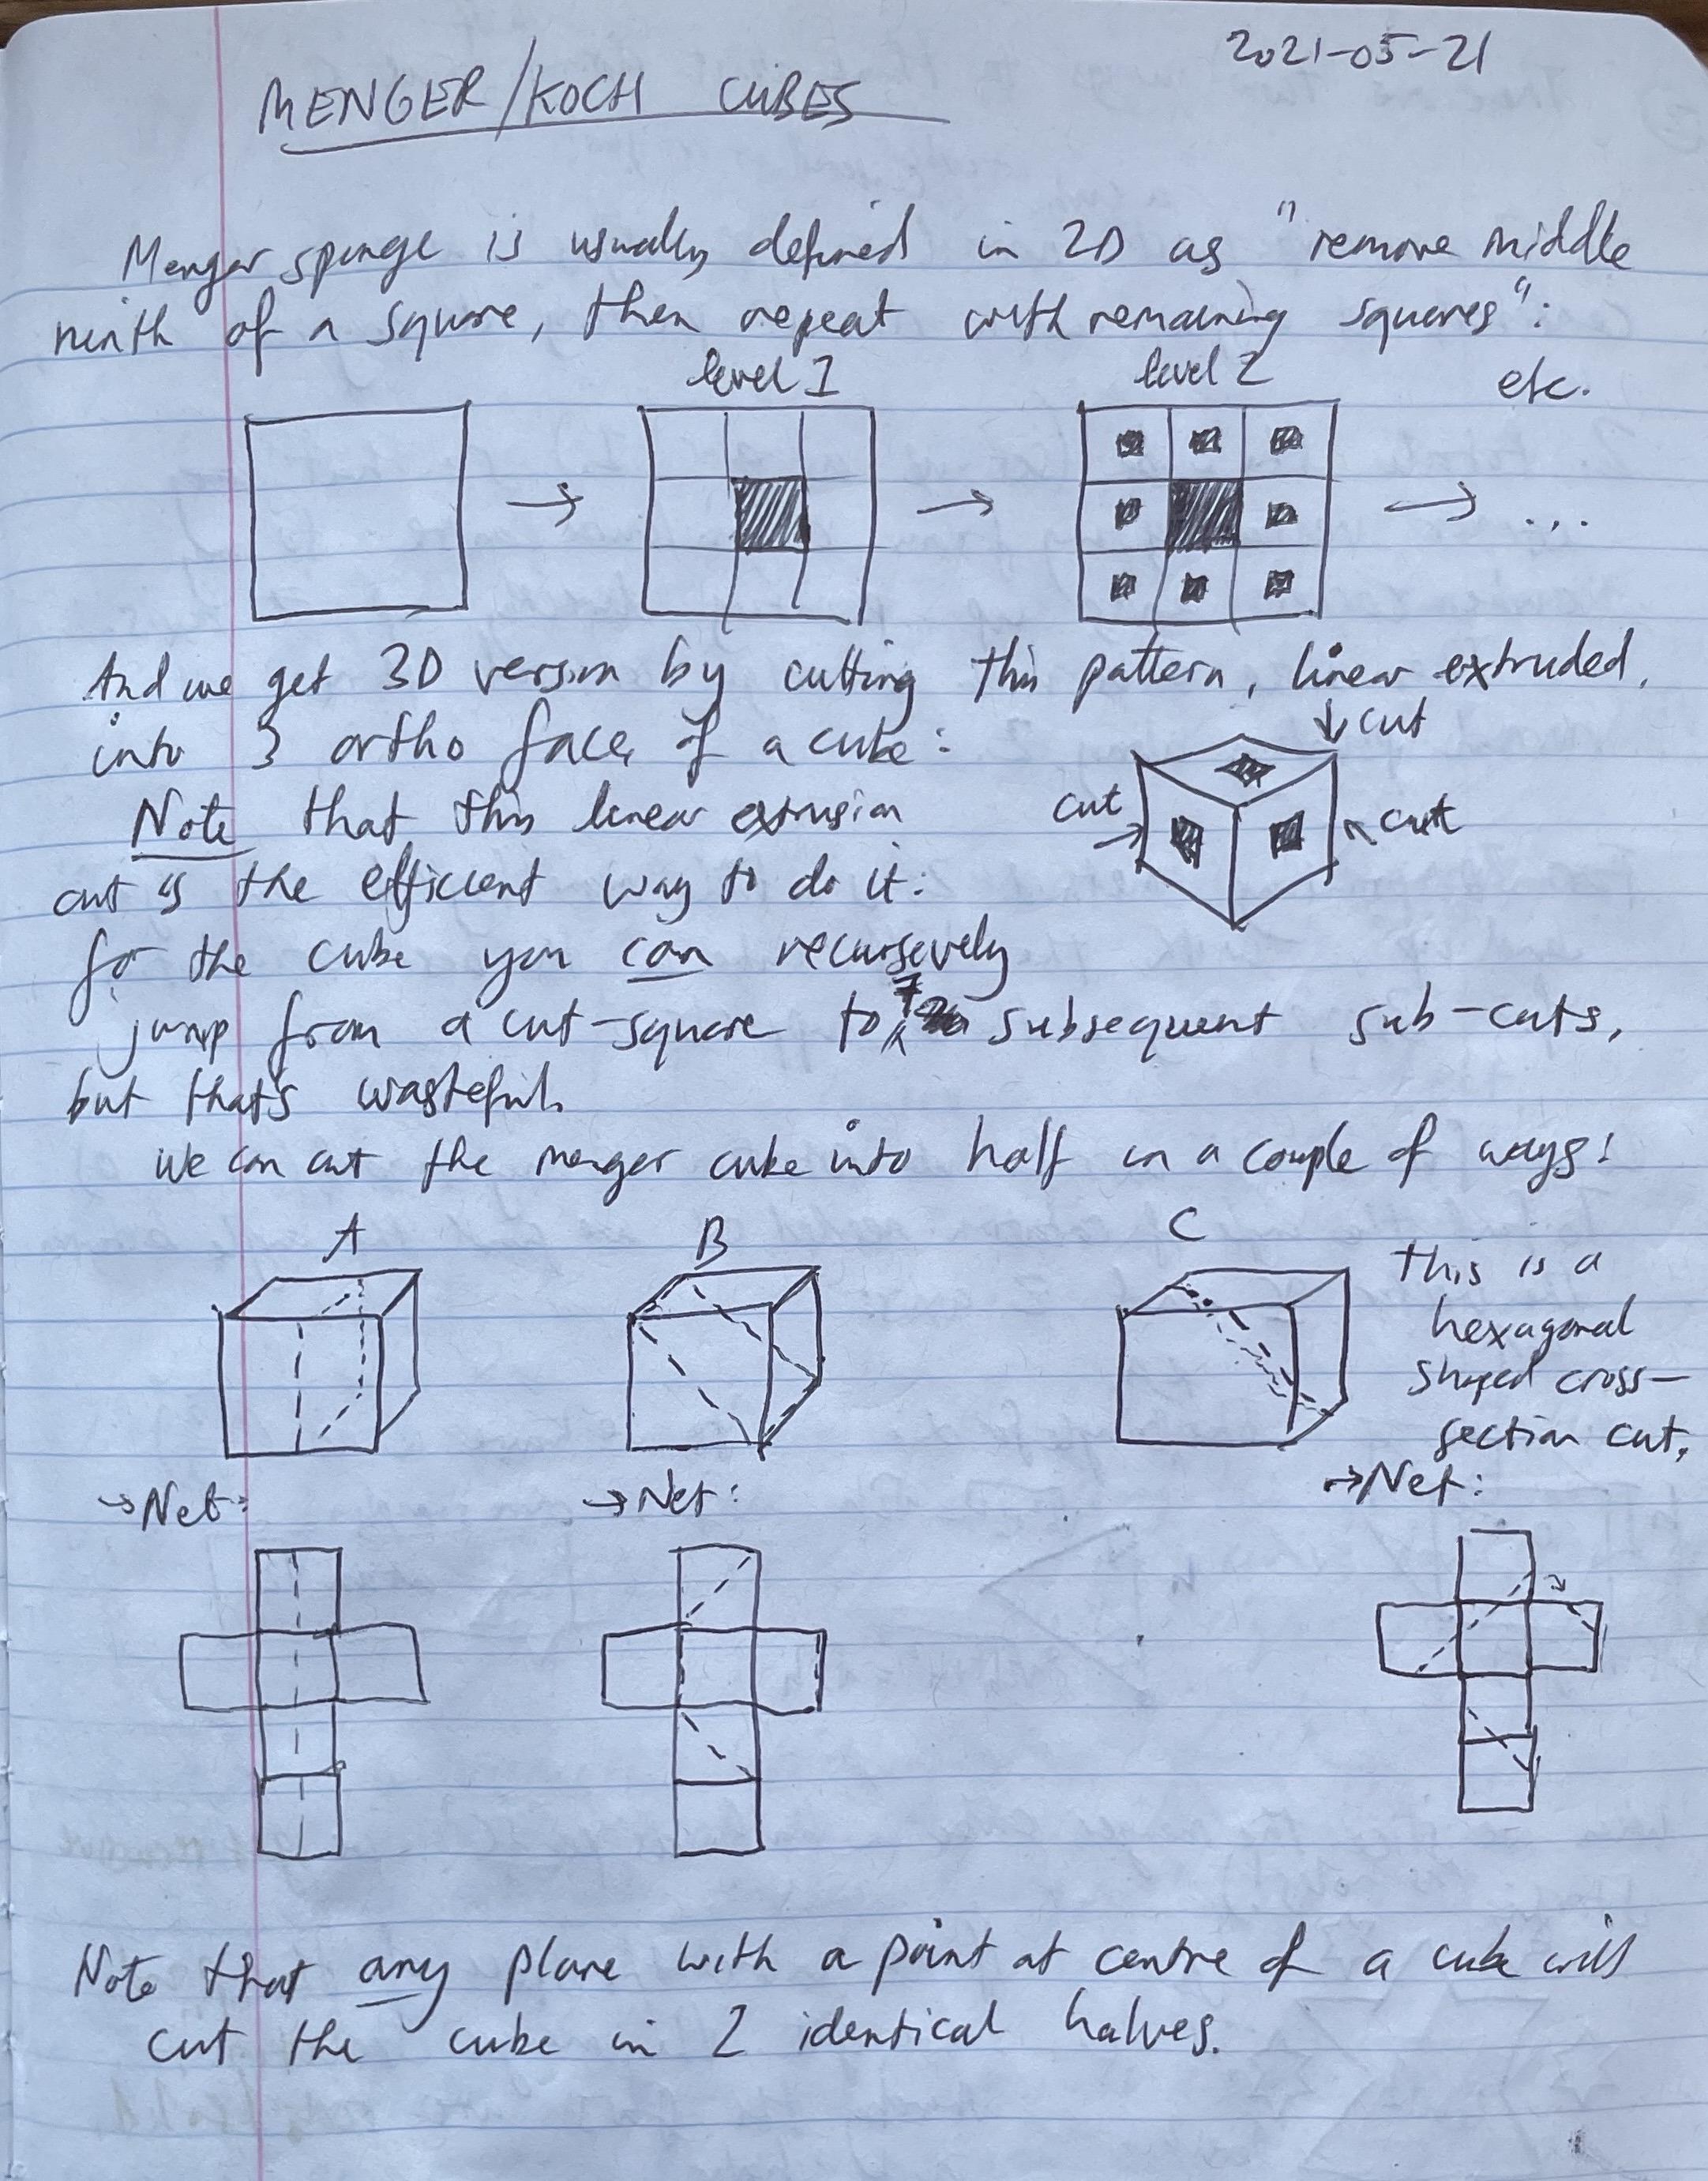 2021-05-21
MENGER/KOCH CUBES
Menger sponge is usually defined in 2D as "remove middle
ninth of a square, then repeat with remaining squares":
level 1
level 2
etc.
→ → → ...
And we get 3D version by cutting this pattern, linear extruded,
into 3 ortho faces of a cube:
↓ cut
cut →
cut
Note that this linear extrusion
cut is the efficient way to do it:
for the cube you can recursively
jump from a cut-square to 7 subsequent sub-cuts,
but that's wasteful.
We can cut the menger cube into half in a couple of ways:
A
B
C
this is a
hexagonal
shaped cross-
section cut.
→ Net:
→ Net:
→ Net:
Note that any plane with a point at centre of a cube will
cut the cube in 2 identical halves.